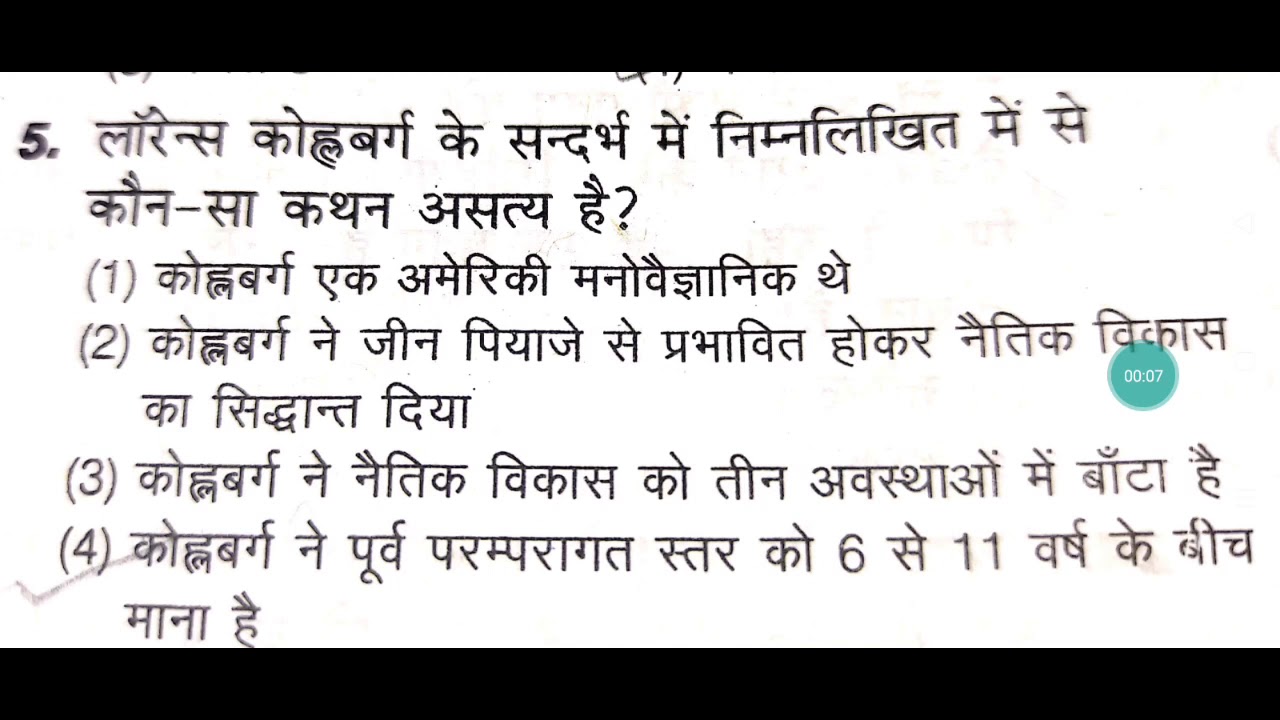 5. लॉरेन्स कोह्लबर्ग के सन्दर्भ में निम्नलिखित में से
कौन-सा कथन असत्य है?
(1) कोह्लबर्ग एक अमेरिकी मनोवैज्ञानिक थे
(2) कोह्लबर्ग ने जीन पियाजे से प्रभावित होकर नैतिक विकास
00:07
का सिद्धान्त दिया
(3) कोह्लबर्ग ने नैतिक विकास को तीन अवस्थाओं में बाँटा है
(4) कोह्लबर्ग ने पूर्व परम्परागत स्तर को 6 से 11 वर्ष के बीच
माना है